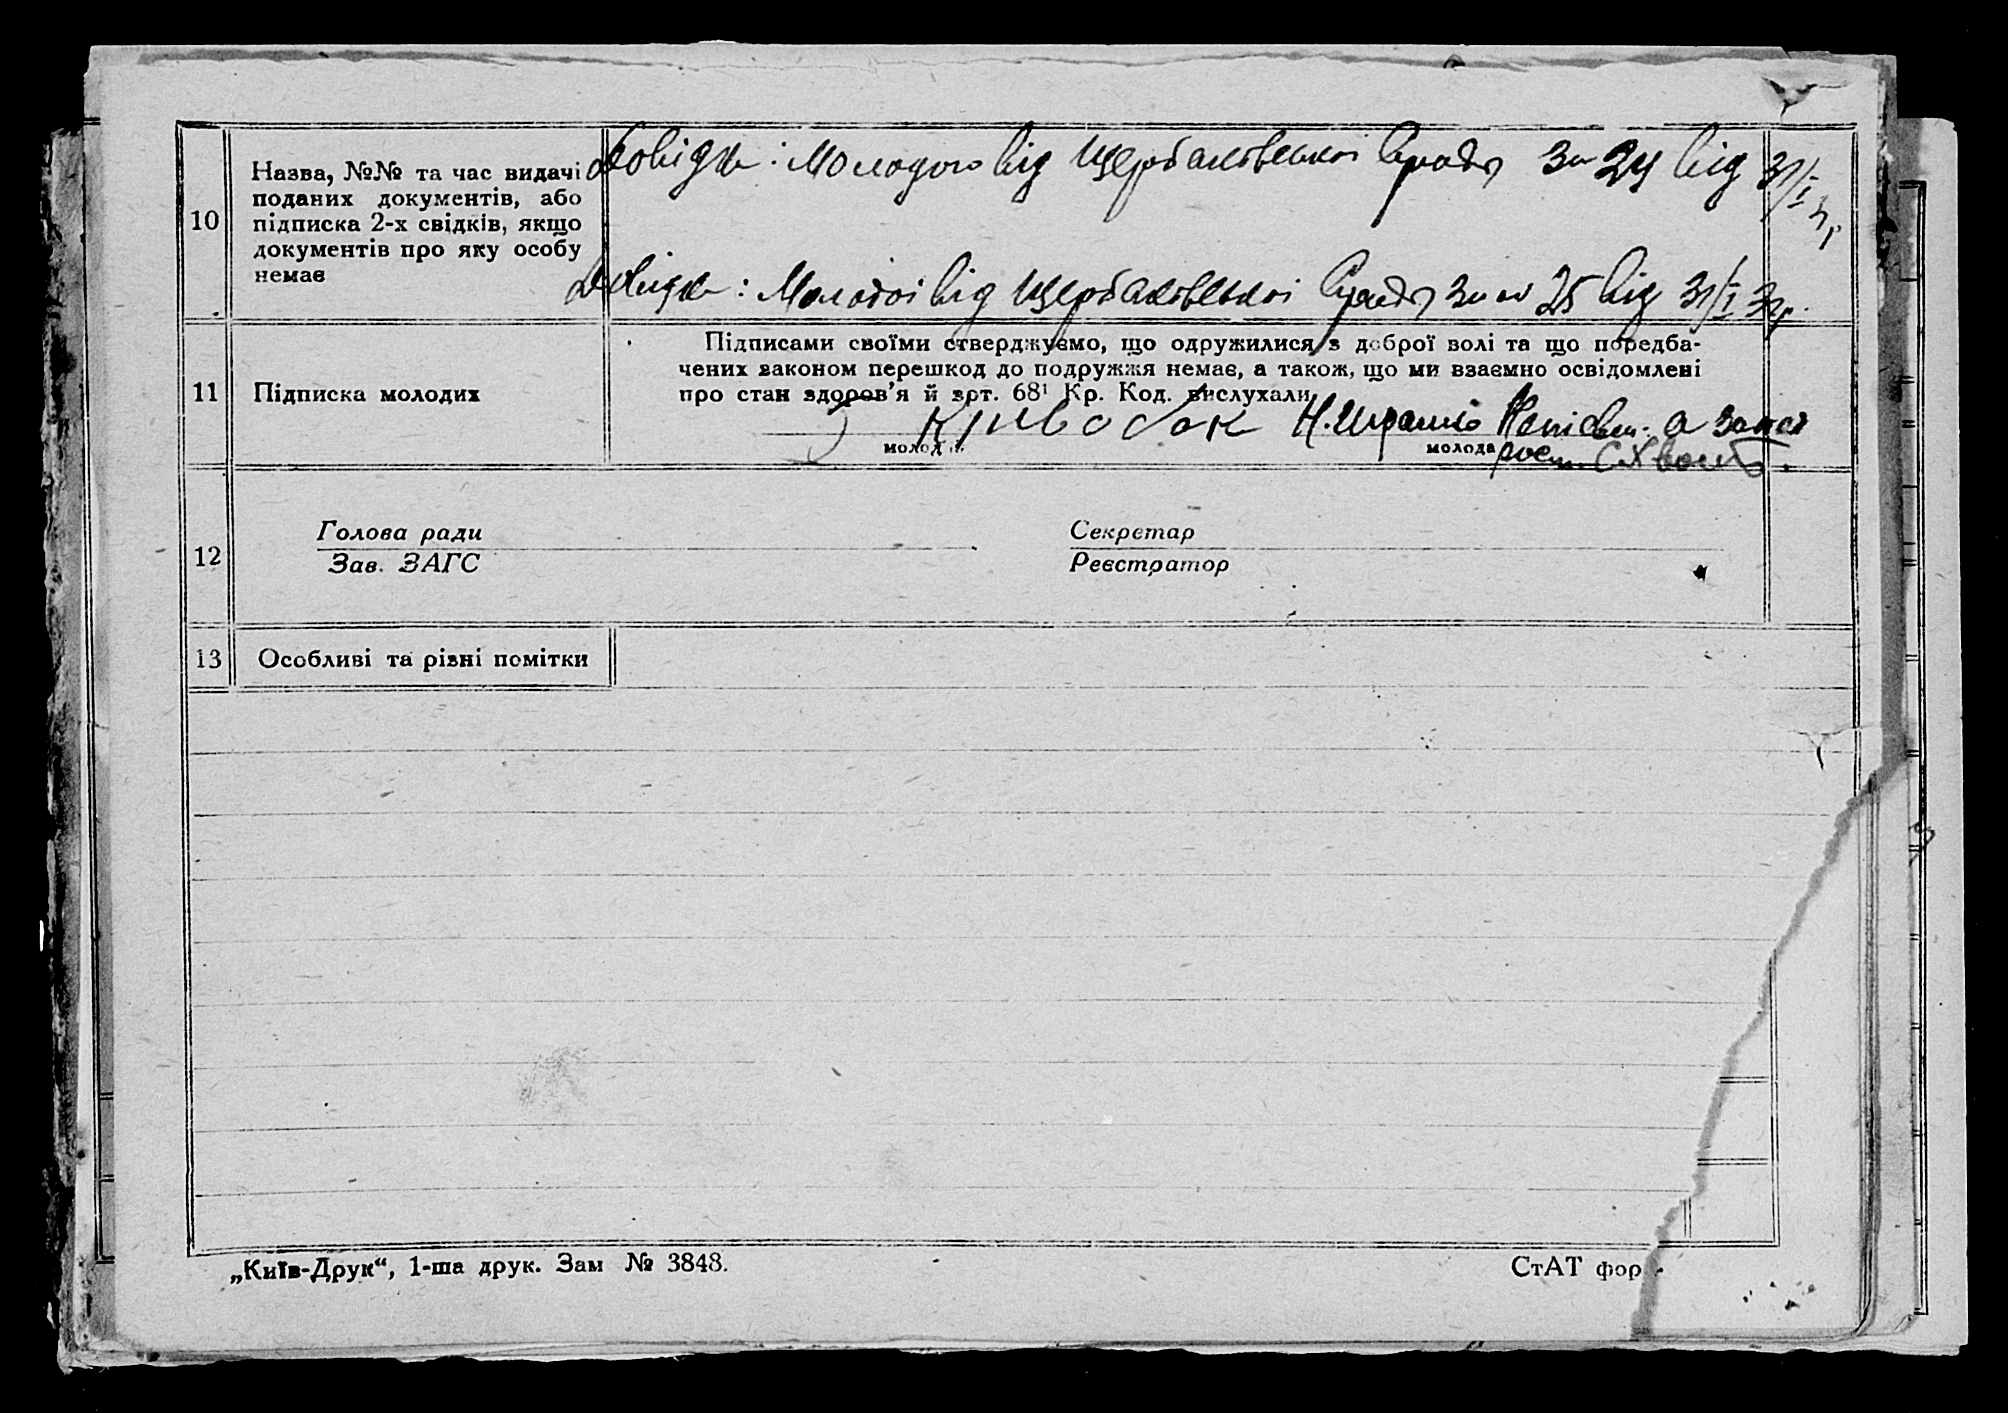 10
Назва, №№ та час видачі
поданих документів, або
підписка 2-х свідків, якщо
документів про яку особу
немає
Довідка: Молодого від Щербаківської С/ради За 24 від 31/I 31р
Довідка: Молодої від Щербаківської С/ради За № 25 від 31/I 31р.
11
Підписка молодих
Підписами своїми стверджуємо, що одружилися з доброї волі та що поредба-
чених законом перешкод до подружжя немає, а також, що ми взаємно освідомлені
про стан здоров'я й арт. 68¹ Кр. Код. вислухали
Кривобок Н. а
молод молода
12
Голова ради Секретар
Зав. ЗАГС Реєстратор
13
Особливі та різні помітки
„Київ-Друк“, 1-ша друк. Зам № 3848. СтАТ фор